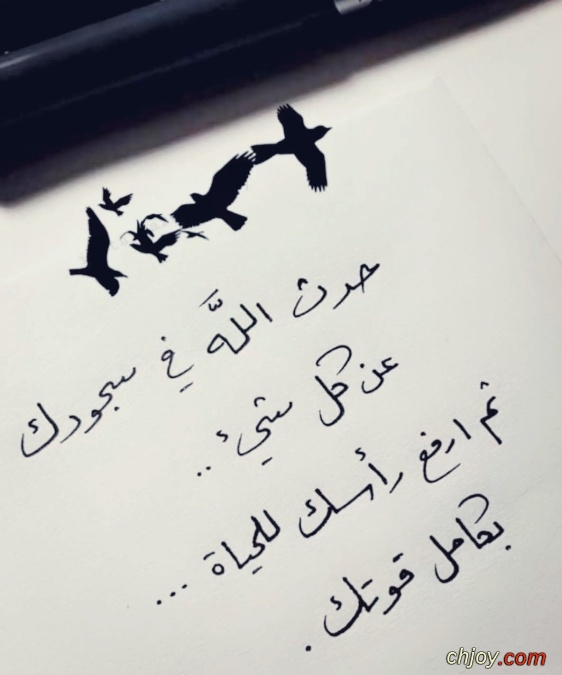 حدث اللَّه في سجودك
عن كل شيء ..
ثم ارفع رأسك للحياة ...
بكامل قوتك .
chjoy.com